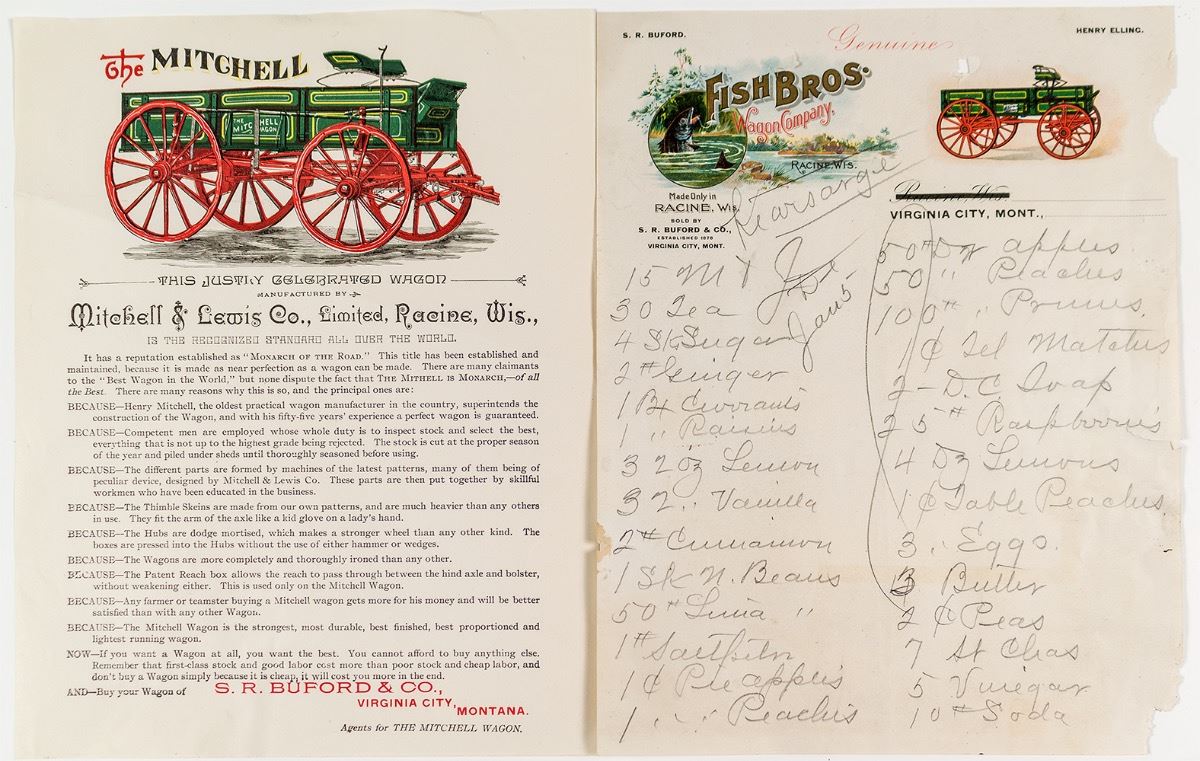 The MITCHELL
THE MITCHELL WAGON
THIS JUSTLY CELEBRATED WAGON
MANUFACTURED BY
Mitchell & Lewis Co., Limited, Racine, Wis.,
IS THE RECOGNIZED STANDARD ALL OVER THE WORLD.
It has a reputation established as "MONARCH OF THE ROAD." This title has been established and
maintained, because it is made as near perfection as a wagon can be made. There are many claimants
to the "Best Wagon in the World," but none dispute the fact that THE MITHELL IS MONARCH,—of all
the Best. There are many reasons why this is so, and the principal ones are:
BECAUSE—Henry Mitchell, the oldest practical wagon manufacturer in the country, superintends the
construction of the Wagon, and with his fifty-five years' experience a perfect wagon is guaranteed.
BECAUSE—Competent men are employed whose whole duty is to inspect stock and select the best,
everything that is not up to the highest grade being rejected. The stock is cut at the proper season
of the year and piled under sheds until thoroughly seasoned before using.
BECAUSE—The different parts are formed by machines of the latest patterns, many of them being of
peculiar device, designed by Mitchell & Lewis Co. These parts are then put together by skillful
workmen who have been educated in the business.
BECAUSE—The Thimble Skeins are made from our own patterns, and are much heavier than any others
in use. They fit the arm of the axle like a kid glove on a lady's hand.
BECAUSE—The Hubs are dodge mortised, which makes a stronger wheel than any other kind. The
boxes are pressed into the Hubs without the use of either hammer or wedges.
BECAUSE—The Wagons are more completely and thoroughly ironed than any other.
BECAUSE—The Patent Reach box allows the reach to pass through between the hind axle and bolster,
without weakening either. This is used only on the Mitchell Wagon.
BECAUSE—Any farmer or teamster buying a Mitchell wagon gets more for his money and will be better
satisfied than with any other Wagon.
BECAUSE—The Mitchell Wagon is the strongest, most durable, best finished, best proportioned and
lightest running wagon.
NOW—If you want a Wagon at all, you want the best. You cannot afford to buy anything else.
Remember that first-class stock and good labor cost more than poor stock and cheap labor, and
don't buy a Wagon simply because it is cheap, it will cost you more in the end.
AND—Buy your Wagon of S. R. BUFORD & CO.,
VIRGINIA CITY, MONTANA.
Agents for THE MITCHELL WAGON.
S. R. BUFORD.
Genuine
HENRY ELLING.
FISH BROS.
Wagon Company,
RACINE, WIS.
Made Only in
RACINE, Wis.
SOLD BY
S. R. BUFORD & CO.,
ESTABLISHED 1878
VIRGINIA CITY, MONT.
Kearsarge
Racine, Wis.
VIRGINIA CITY, MONT.,
Jan 5
15 M
30 Tea
4 Sk Sugar
2 # Ginger
1 Bx Currants
1 " Raisins
3 2 oz Lemon
3 2 " Vanilla
2 # Cinnamon
1 Sk N. Beans
50 # Lima "
1 #
1 ¢ Pie apples
1 " " Peaches
50 # apples
50 " Peaches
100 # " Prunes
1 ¢ Tel Matches
2 - D.C. Soap
25 #
4 Dz Lemons
1 ¢ Table Peaches
3 " Eggs.
3 Butter
2 ¢ Peas
7 St Chas
5 Vinegar
10 # Soda